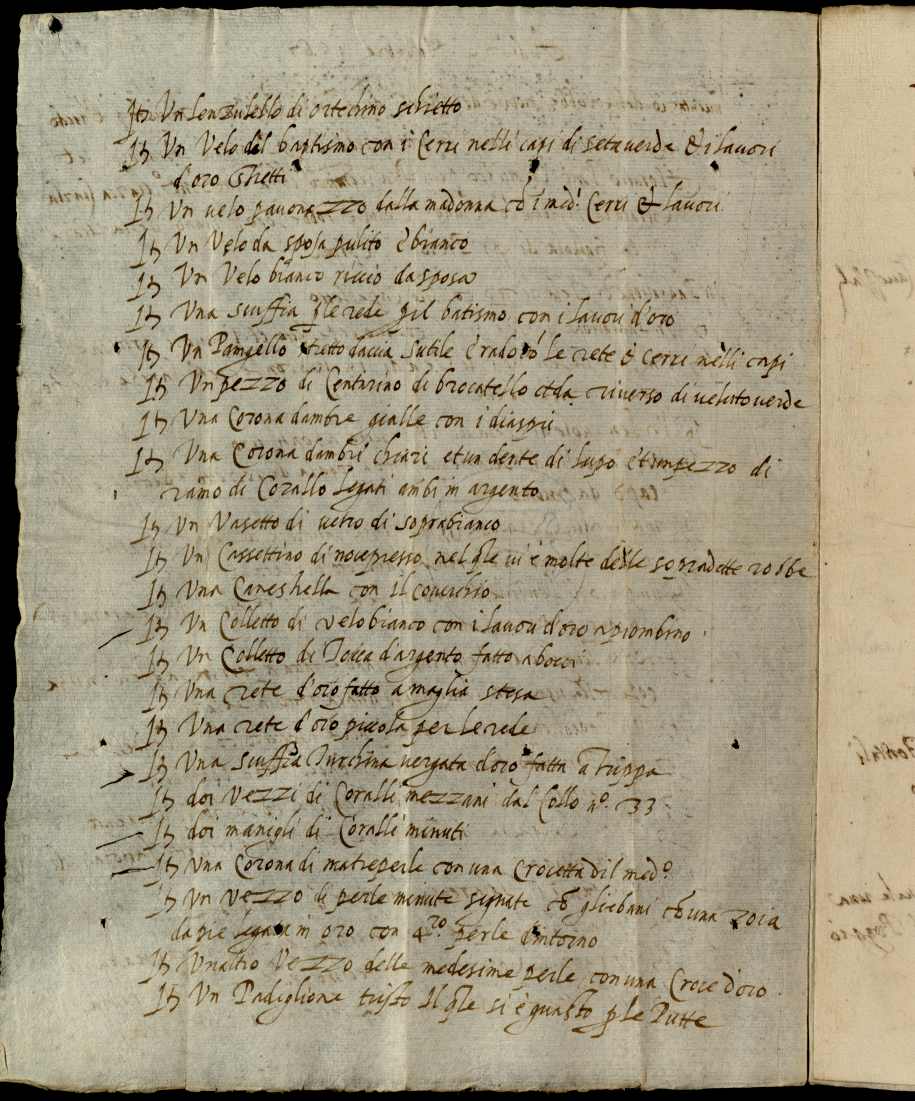 It Un lenzuleblo di ortechino schietto
It Un Velo del baptismo con i Cerri nelli capi di seta verde & i lavori
d'oro schetti
It Un velo pavonazzo dalla madonna cõ i med.i Cerri & lavori
It Un Velo da sposa pulito è bianco
It Un Velo bianco riccio da sposa
It Una scuffia p le rede p il batismo con i lavori d'oro
It Un Panisello stretto daccia sutile è radopó le rete è cerri nelli capi
It Un pezzo di Centurino di brocatello et da riverso di veluto verde
It Una Corona dambre gialle con i diaspri
It Una Corona dambri chiari et un dente di lupo et un pezzo di
ramo di Corallo legati ambi in argento
It Un Vasetto di vetro di soprabianco
It Un Cassettino di nocepresso nel qle vi è molte delle sopradette robbe
It Una Caneshella con il coverchio
It Un Colletto di velo bianco con i lavori d'oro a piombino
It Un Colletto di Tocca d'argento fatto a bocci
It Una rete d'oro fatto a maglia stesa
It Una rete d'oro piccola per le rede
It Una scuffia Turchina vergata d'oro fatta a Trippa
It doi vezzi di Coralli mezzani dal Collo nº. 33
It doi manigli di Coralli minuti
It Una Corona di matreperle con una Crocetta dil medº.
It Un vezzo di perle minute signate cõ gli ebani cõ una zoia
da pie legata in oro con 4ro. perle d'intorno
It Un altro Vezzo delle medesime perle con una Croce d'oro
It Un Padiglione tristo il qle si è guasto p le Putte